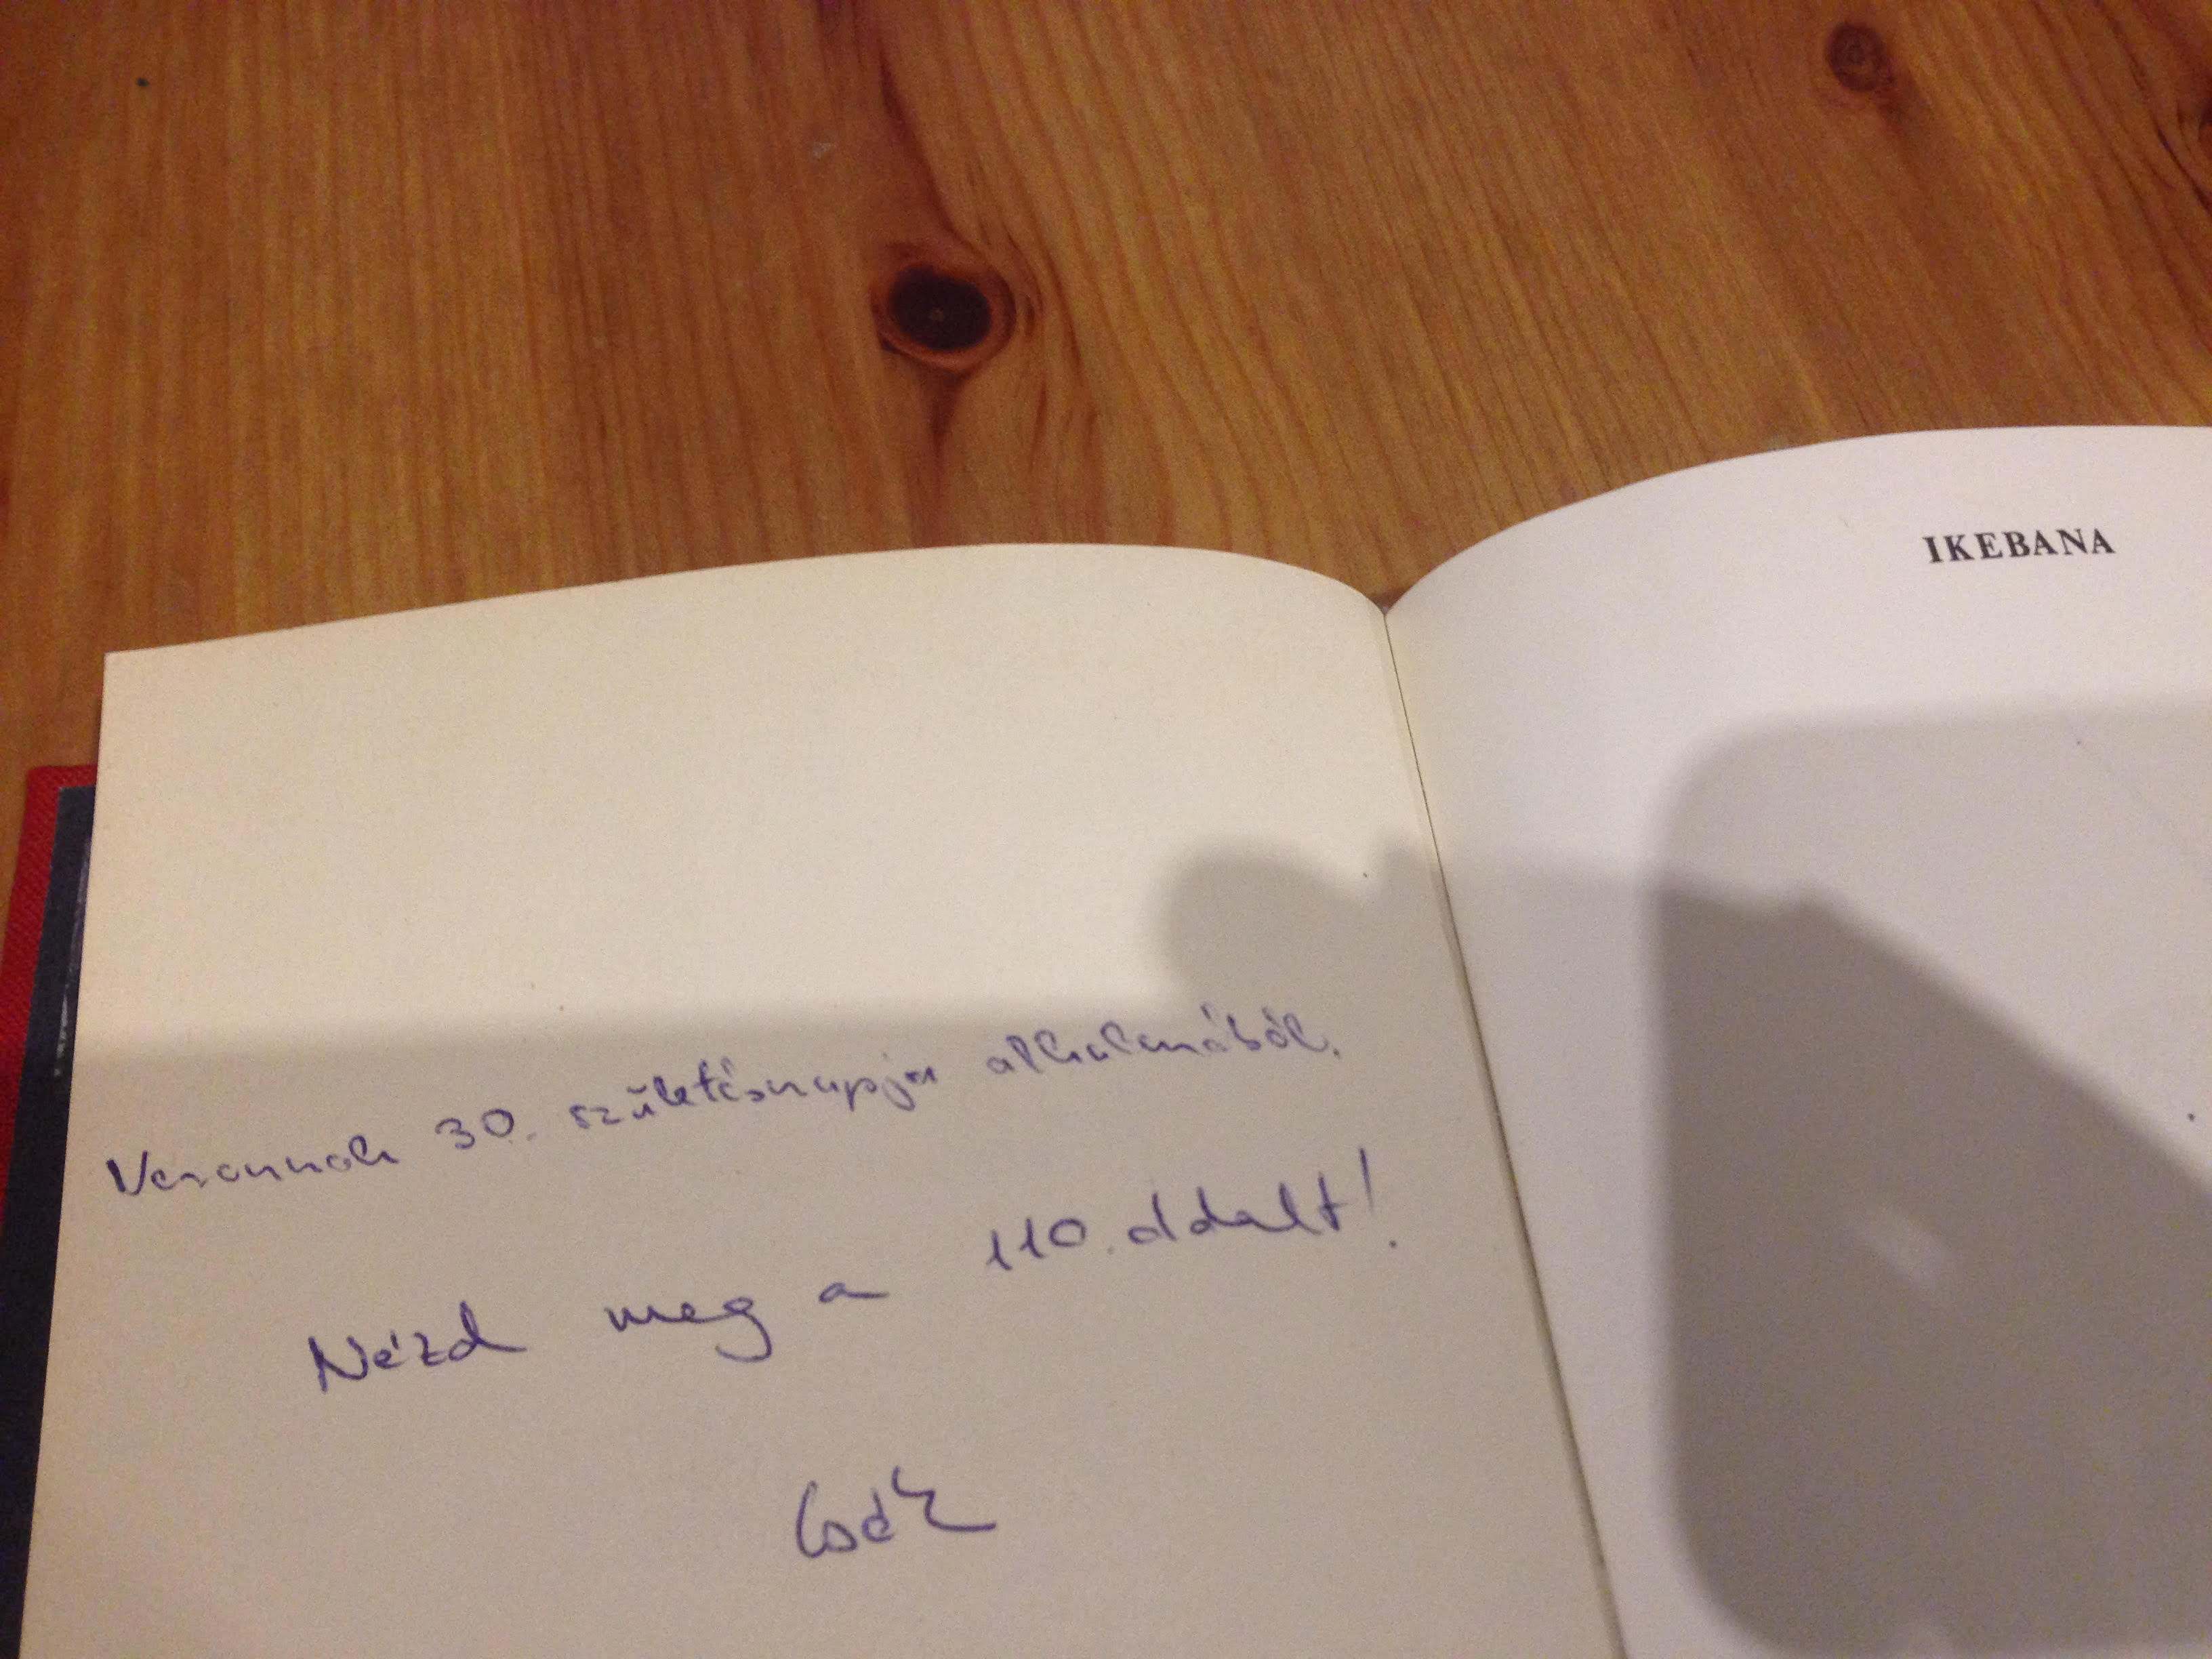 IKEBANA
Verannak 30. születésnapja alkalmából.
Nézd meg a 110. oldalt!